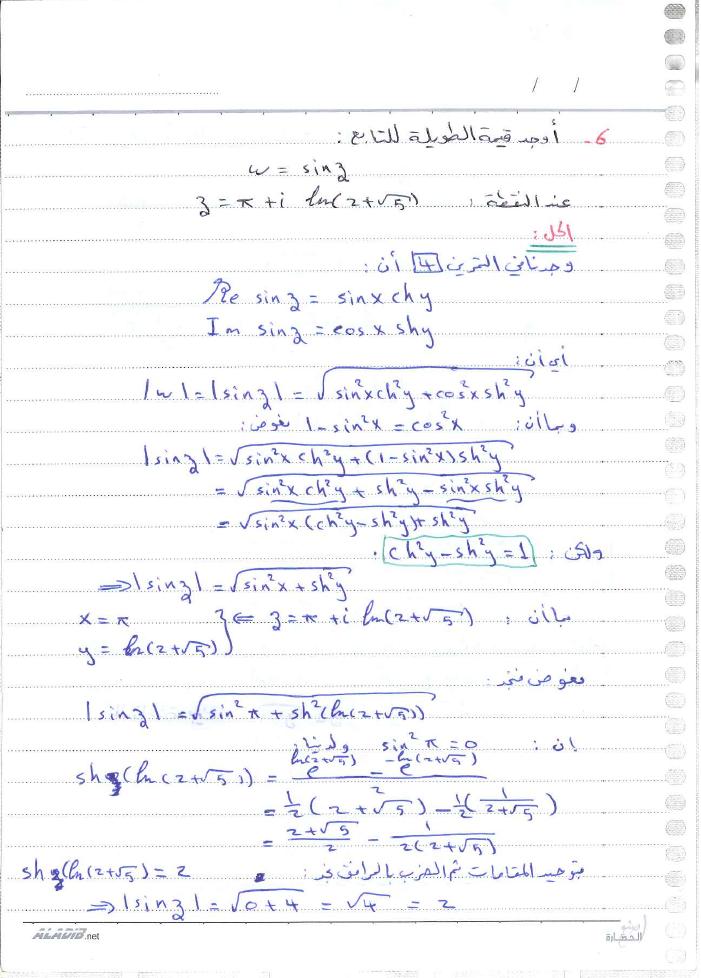 / /
6- أوجد قيمة الطويلة للتابع :
w = sin z
عند النقطة : z = π + i ln(2+√5)
الحل :
وجدنا في التمرين 4 أن :
Re sin z = sin x ch y
Im sin z = cos x sh y
أي أن :
|w| = |sin z| = √(sin²x ch²y + cos²x sh²y)
وبما أن : 1 - sin²x = cos²x نعوض :
|sin z| = √(sin²x ch²y + (1 - sin²x) sh²y)
= √(sin²x ch²y + sh²y - sin²x sh²y)
= √(sin²x (ch²y - sh²y) + sh²y)
ولكن : ch²y - sh²y = 1 .
⇒ |sin z| = √(sin²x + sh²y)
بما أن : z = π + i ln(2+√5) ⇐ } x = π
y = ln(2+√5)
نعوض فنجد :
|sin z| = √(sin²π + sh²(ln(2+√5)))
إن : sin²π = 0 ولدينا :
sh(ln(2+√5)) = (e^ln(2+√5) - e^-ln(2+√5)) / 2
= 1/2 (2+√5) - 1/2 (1/(2+√5))
= (2+√5)/2 - 1/(2(2+√5))
بتوحيد المقامات ثم الضرب بالمرافق نجد : sh(ln(2+√5)) = 2
⇒ |sin z| = √(0+4) = √4 = 2
ALADIB.net
الحضارة